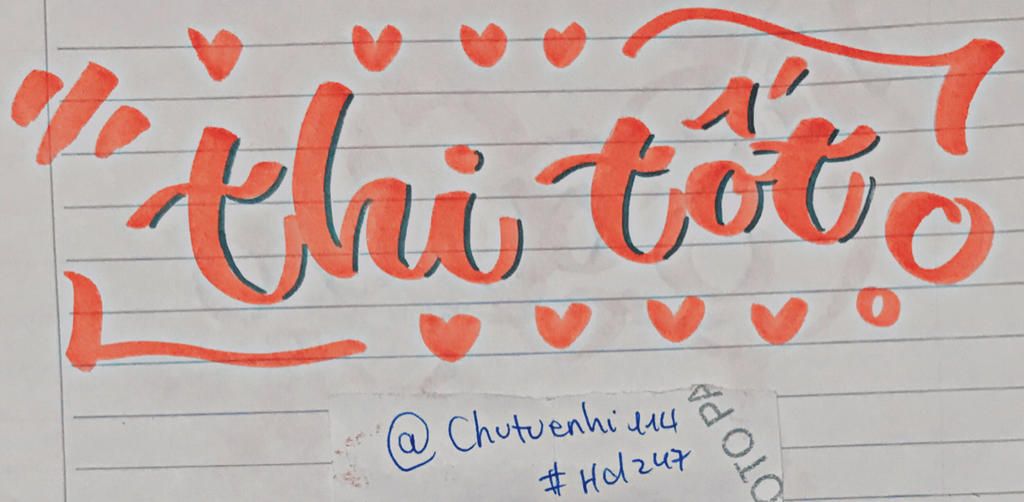 thi tốt
@Chutuenhi114
#Hd247
OTO PA